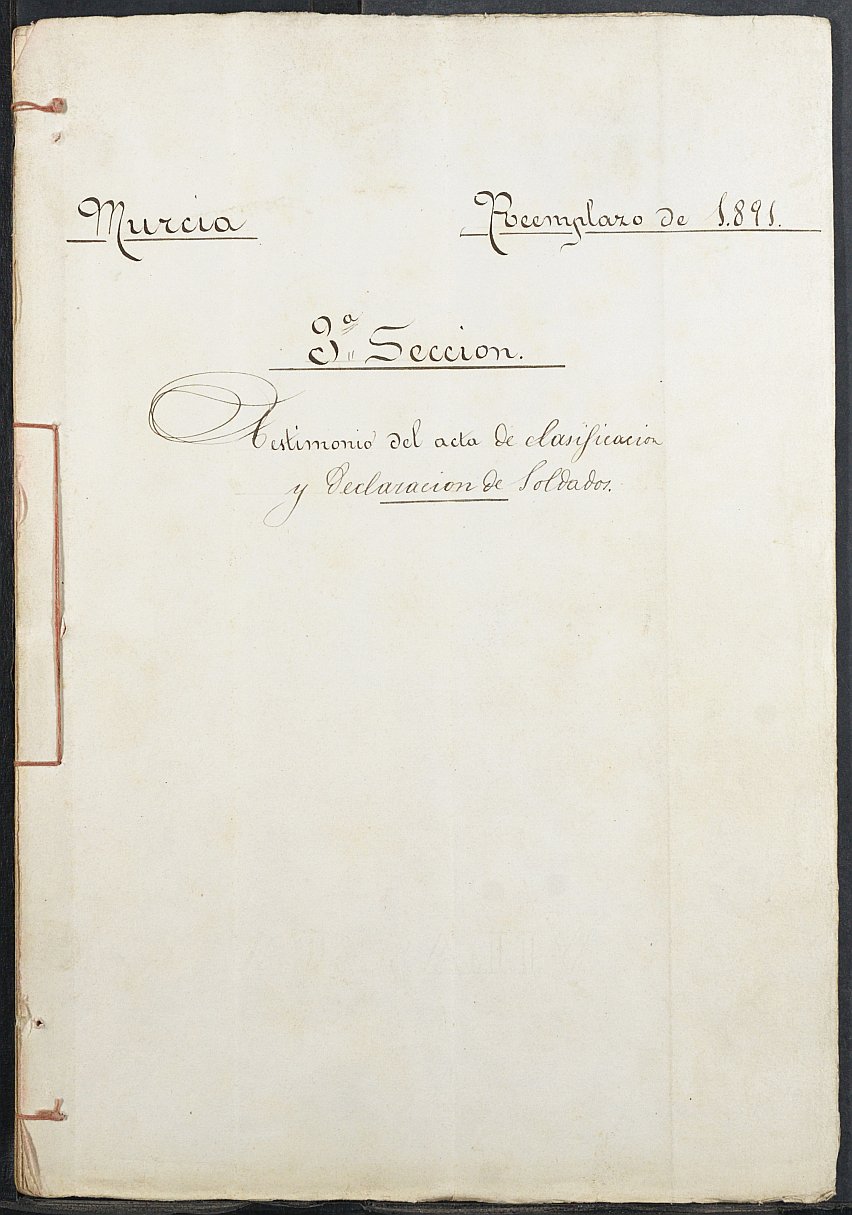 Murcia
Reemplazo de 1.891.
3ª Seccion.
Testimonio del acta de clasificacion
y Declaracion de Soldados.